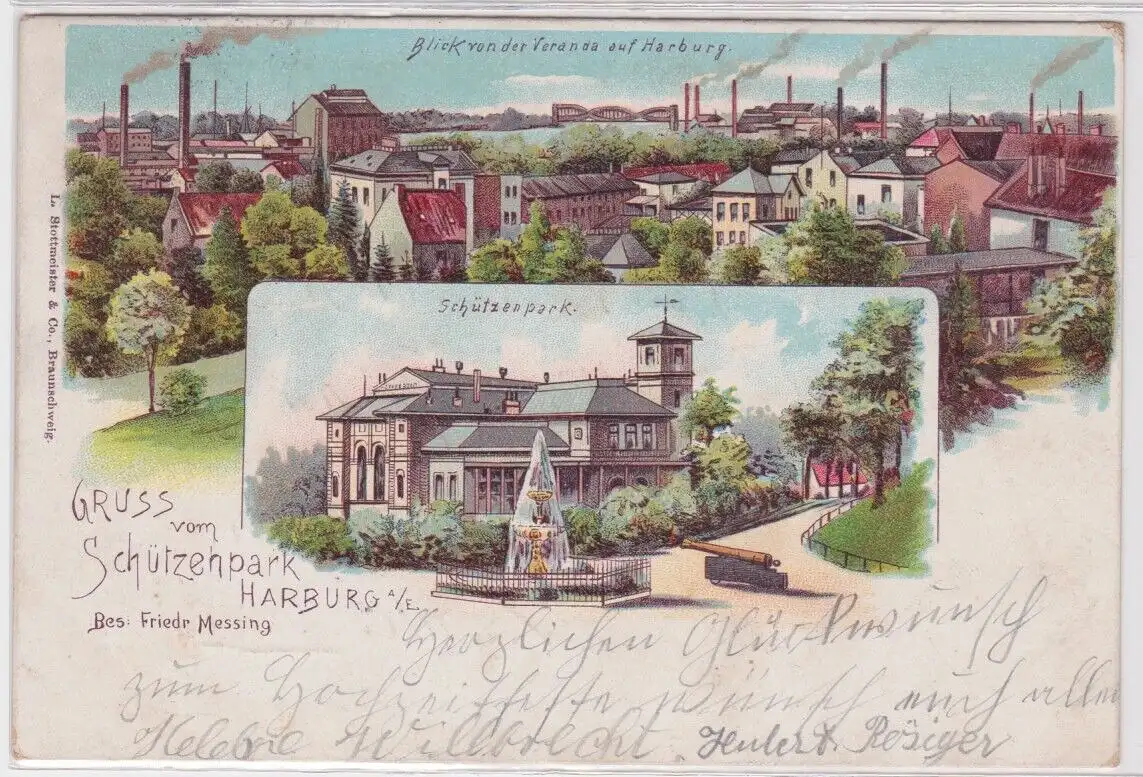 Blick von der Veranda auf Harburg.
Schützenpark.
L. Stottmeister & Co., Braunschweig.
GRUSS
vom
Schützenpark
HARBURG A/E.
Bes: Friedr Messing
Herzlichen Glückwunsch
zum Hochzeitsfeste wünsch euch allen
Willbrecht Rösiger